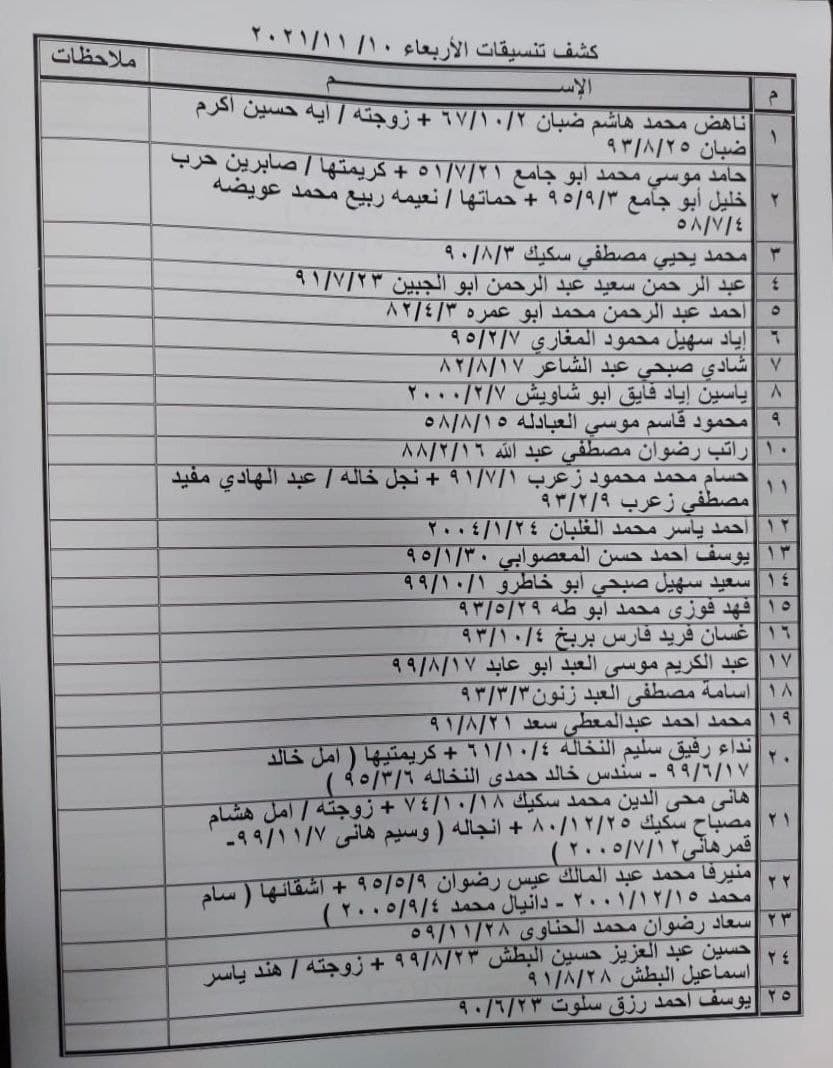 كشف تنسيقات الأربعاء ٢٠٢١/١١/١٠
م الإســـــــــــم ملاحظات
١ ناهض محمد هاشم ضبان ٦٧/١٠/٢ + زوجته / ايه حسين اكرم
ضبان ٩٣/٨/٢٥
٢ حامد موسي محمد ابو جامع ٥١/٧/٢١ + كريمتها / صابرين حرب
خليل أبو جامع ٩٥/٩/٣ + حماتها / نعيمه ربيع محمد عويضه
٥٨/٧/٤
٣ محمد يحيي مصطفي سكيك ٩٠/٨/٣
٤ عبد الر حمن سعيد عبد الرحمن ابو الجبين ٩١/٧/٢٣
٥ احمد عبد الرحمن محمد ابو عمره ٨٢/٤/٣
٦ إياد سهيل محمود المغاري ٩٥/٢/٧
٧ شادي صبحي عبد الشاعر ٨٢/٨/١٧
٨ ياسين إياد فايق ابو شاويش ٢٠٠٠/٢/٧
٩ محمود قاسم موسي العبادله ٥٨/٨/١٥
١٠ راتب رضوان مصطفي عبد الله ٨٨/٢/١٦
١١ حسام محمد محمود زعرب ٩١/٧/١ + نجل خاله / عبد الهادي مفيد
مصطفي زعرب ٩٣/٢/٩
١٢ احمد ياسر محمد الغلبان ٢٠٠٤/١/٢٤
١٣ يوسف احمد حسن المعصوابي ٩٥/١/٣٠
١٤ سعيد سهيل صبحي ابو خاطرو ٩٩/١٠/١
١٥ فهد فوزى محمد ابو طه ٩٣/٥/٢٩
١٦ غسان فريد فارس بربخ ٩٣/١٠/٤
١٧ عبد الكريم موسى العبد ابو عابد ٩٩/٨/١٧
١٨ اسامة مصطفى العبد زنون٩٣/٣/٣
١٩ محمد احمد عبدالمعطى سعد ٩١/٨/٢١
٢٠ نداء رفيق سليم النخاله ٦١/١٠/٤ + كريمتيها ( امل خالد
٩٩/٦/١٧ - سندس خالد حمدى النخاله ٩٥/٣/٦ )
٢١ هانى محى الدين محمد سكيك ٧٤/١٠/١٨ + زوجته / امل هشام
مصباح سكيك ٨٠/١٢/٢٥ + انجاله ( وسيم هانى ٩٩/١١/٧-
قمرهانى٢٠٠٥/٧/١٢ )
٢٢ منيرفا محمد عبد المالك عيس رضوان ٩٥/٥/٩ + اشقائها ( سام
محمد ٢٠٠١/١٢/١٥ - دانيال محمد ٢٠٠٥/٩/٤ )
٢٣ سعاد رضوان محمد الحناوى ٥٩/١١/٢٨
٢٤ حسين عبد العزيز حسين البطش ٩٩/٨/٢٣ + زوجته / هند ياسر
اسماعيل البطش ٩١/٨/٢٨
٢٥ يوسف احمد رزق سلوت ٩٠/٦/٢٣